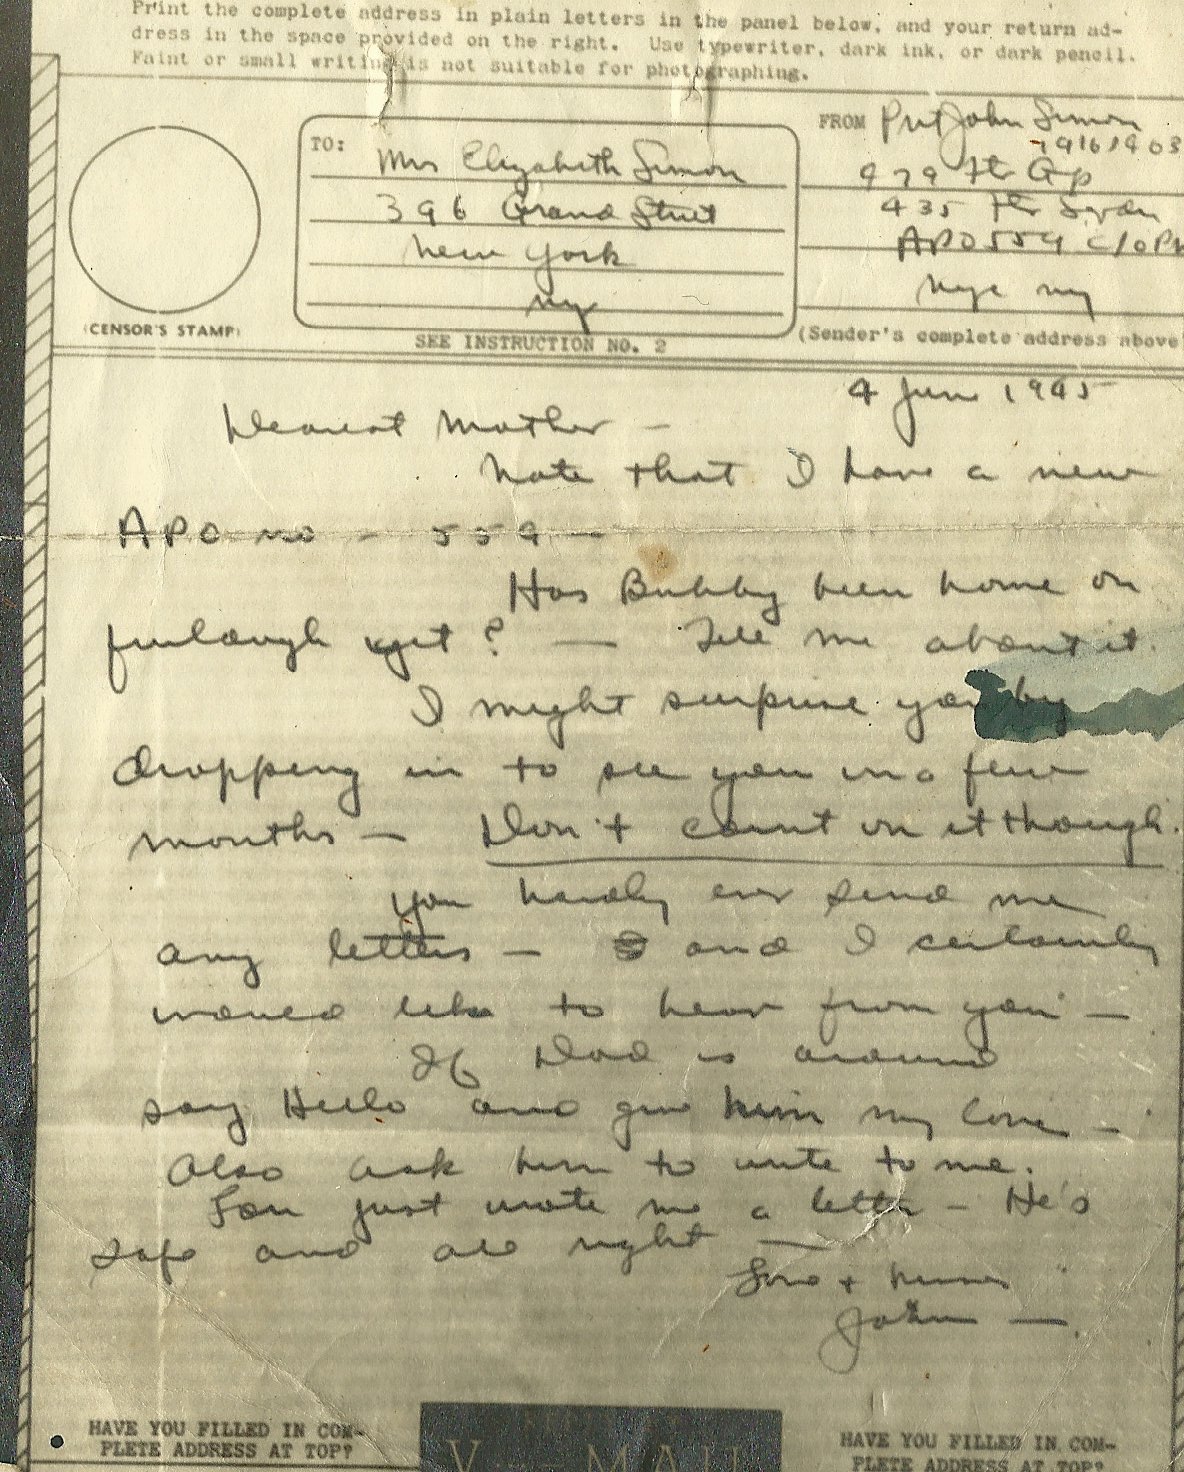 Print the complete address in plain letters in the panel below, and your return ad-
dress in the space provided on the right. Use typewriter, dark ink, or dark pencil.
Faint or small writing is not suitable for photographing.
(CENSOR'S STAMP)
TO:
Mrs Elizabeth Simon
396 Grand Street
New York
NY
SEE INSTRUCTION NO. 2
FROM Pvt John Simon
479 Ftr Gp
435 Ftr Sqdn
APO 559 c/o PM
NYC NY
(Sender's complete address above)
4 June 1945
Dearest Mother -
Note that I have a new
APO no - 559 -
Has Bubby been home on
furlough yet? — Tell me about it.
I might surprise you by
dropping in to see you in a few
months — Don't count on it though.
You hardly ever send me
any letters — and I certainly
would like to hear from you —
If Dad is around
say Hello and give him my love -
Also ask him to write to me.
Lou just wrote me a letter - He's
safe and all right —
Love + kisses
John —
HAVE YOU FILLED IN COM-
PLETE ADDRESS AT TOP?
V - MAIL
HAVE YOU FILLED IN COM-
PLETE ADDRESS AT TOP?